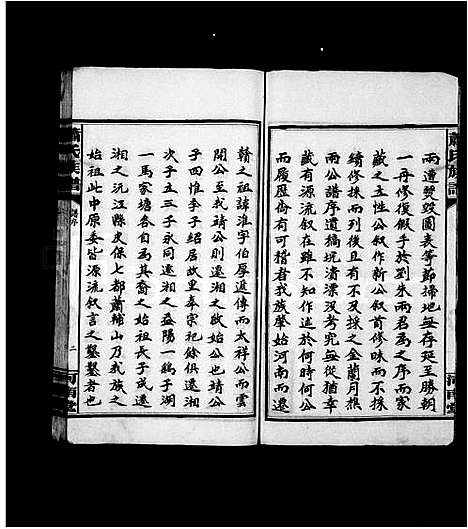 蕭氏族譜
兩遭燹毀圖表等節掃地無存延至勝朝
一再修復假手於劉朱兩君為之序而家
藏之主性公叙作新公叙首修昧而不採
續修採而列後且有不及採之金蘭月樵
兩公譜序遺稿沉漬漂沒考究無從猶幸
藏有源流叙在雖不知作述於何時何公
而履歷斋有可稽者我族肇始河南而遷
河南堂
贛之祖諱淮字伯厚遞傳而太祥公而雲
開公至我靖公則遷湘之啟始公也靖公
子四惟季子紹居故里奉宗祀餘俱遷湘
次子五三子永同遷湘之益陽一鷂子湖
一馬家塘各自為其裔之始祖長子成遷
湘之沅江縣史保七都蕭綿山乃我族之
始祖此中原委皆源流叙言之鑿鑿者也
蕭氏族譜
譜序
二
河南堂